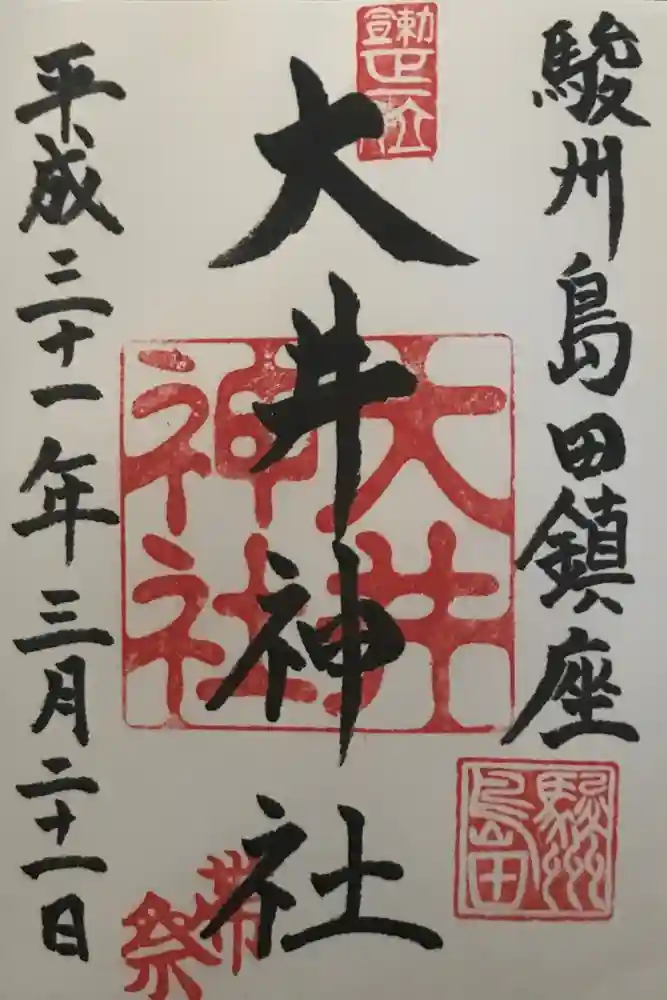 駿州島田鎮座
駿州
島田
大井神社
大井
神社
帯
祭
平成三十一年三月二十一日